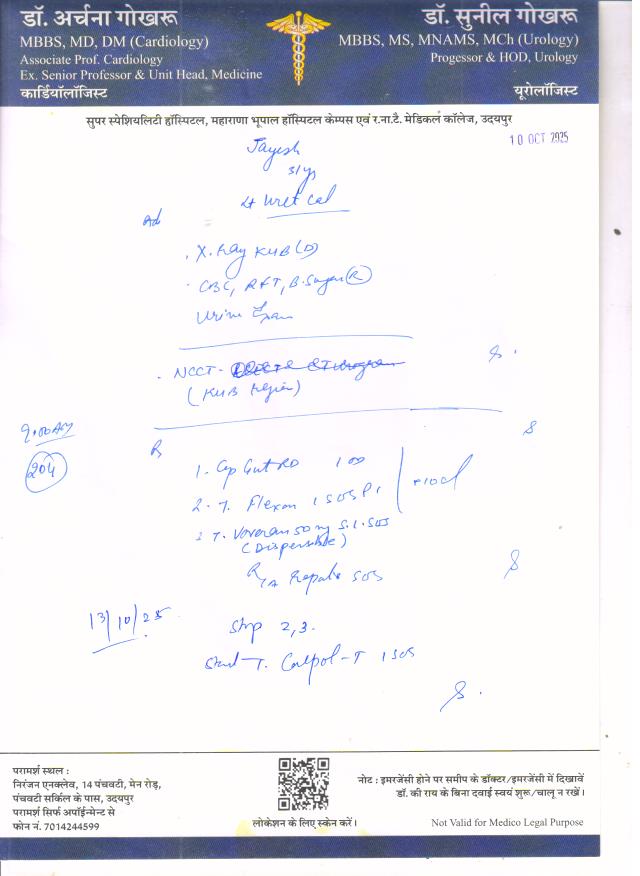 डॉ. अर्चना गोखरू
MBBS, MD, DM (Cardiology)
Associate Prof. Cardiology
Ex. Senior Professor & Unit Head, Medicine
कार्डियॉलॉजिस्ट
डॉ. सुनील गोखरू
MBBS, MS, MNAMS, MCh (Urology)
Progessor & HOD, Urology
यूरोलॉजिस्ट
सुपर स्पेशियलिटी हॉस्पिटल, महाराणा भूपाल हॉस्पिटल केम्पस एवं र.ना.टै. मेडिकल कॉलेज, उदयपुर
10 OCT 2025
Jayesh
31 yrs
Lt Uret Cal
Ad
. X. Ray KUB (D)
. CBC, RFT, B. Sugar (R)
Urine Exam
. NCCT -
(KUB Region)
9:00 AM
204
1. Cap 1 OD
2. T. Flexon 1 SOS
+10d
3 T. Voveran 50 mg S.L. SOS
(Dispersible)
R/A Reports SOS
13/10/25
Stop 2,3.
Start T. Calpol-T 1 SOS
परामर्श स्थल :
निरंजन एनक्लेव, 14 पंचवटी, मेन रोड़,
पंचवटी सर्किल के पास, उदयपुर
परामर्श सिर्फ अपॉईन्मेन्ट से
फोन नं. 7014244599
लोकेशन के लिए स्केन करें।
नोट : इमरजेंसी होने पर समीप के डॉक्टर/इमरजेंसी में दिखावें
डॉ. की राय के बिना दवाई स्वयं शुरू/चालू न रखें।
Not Valid for Medico Legal Purpose